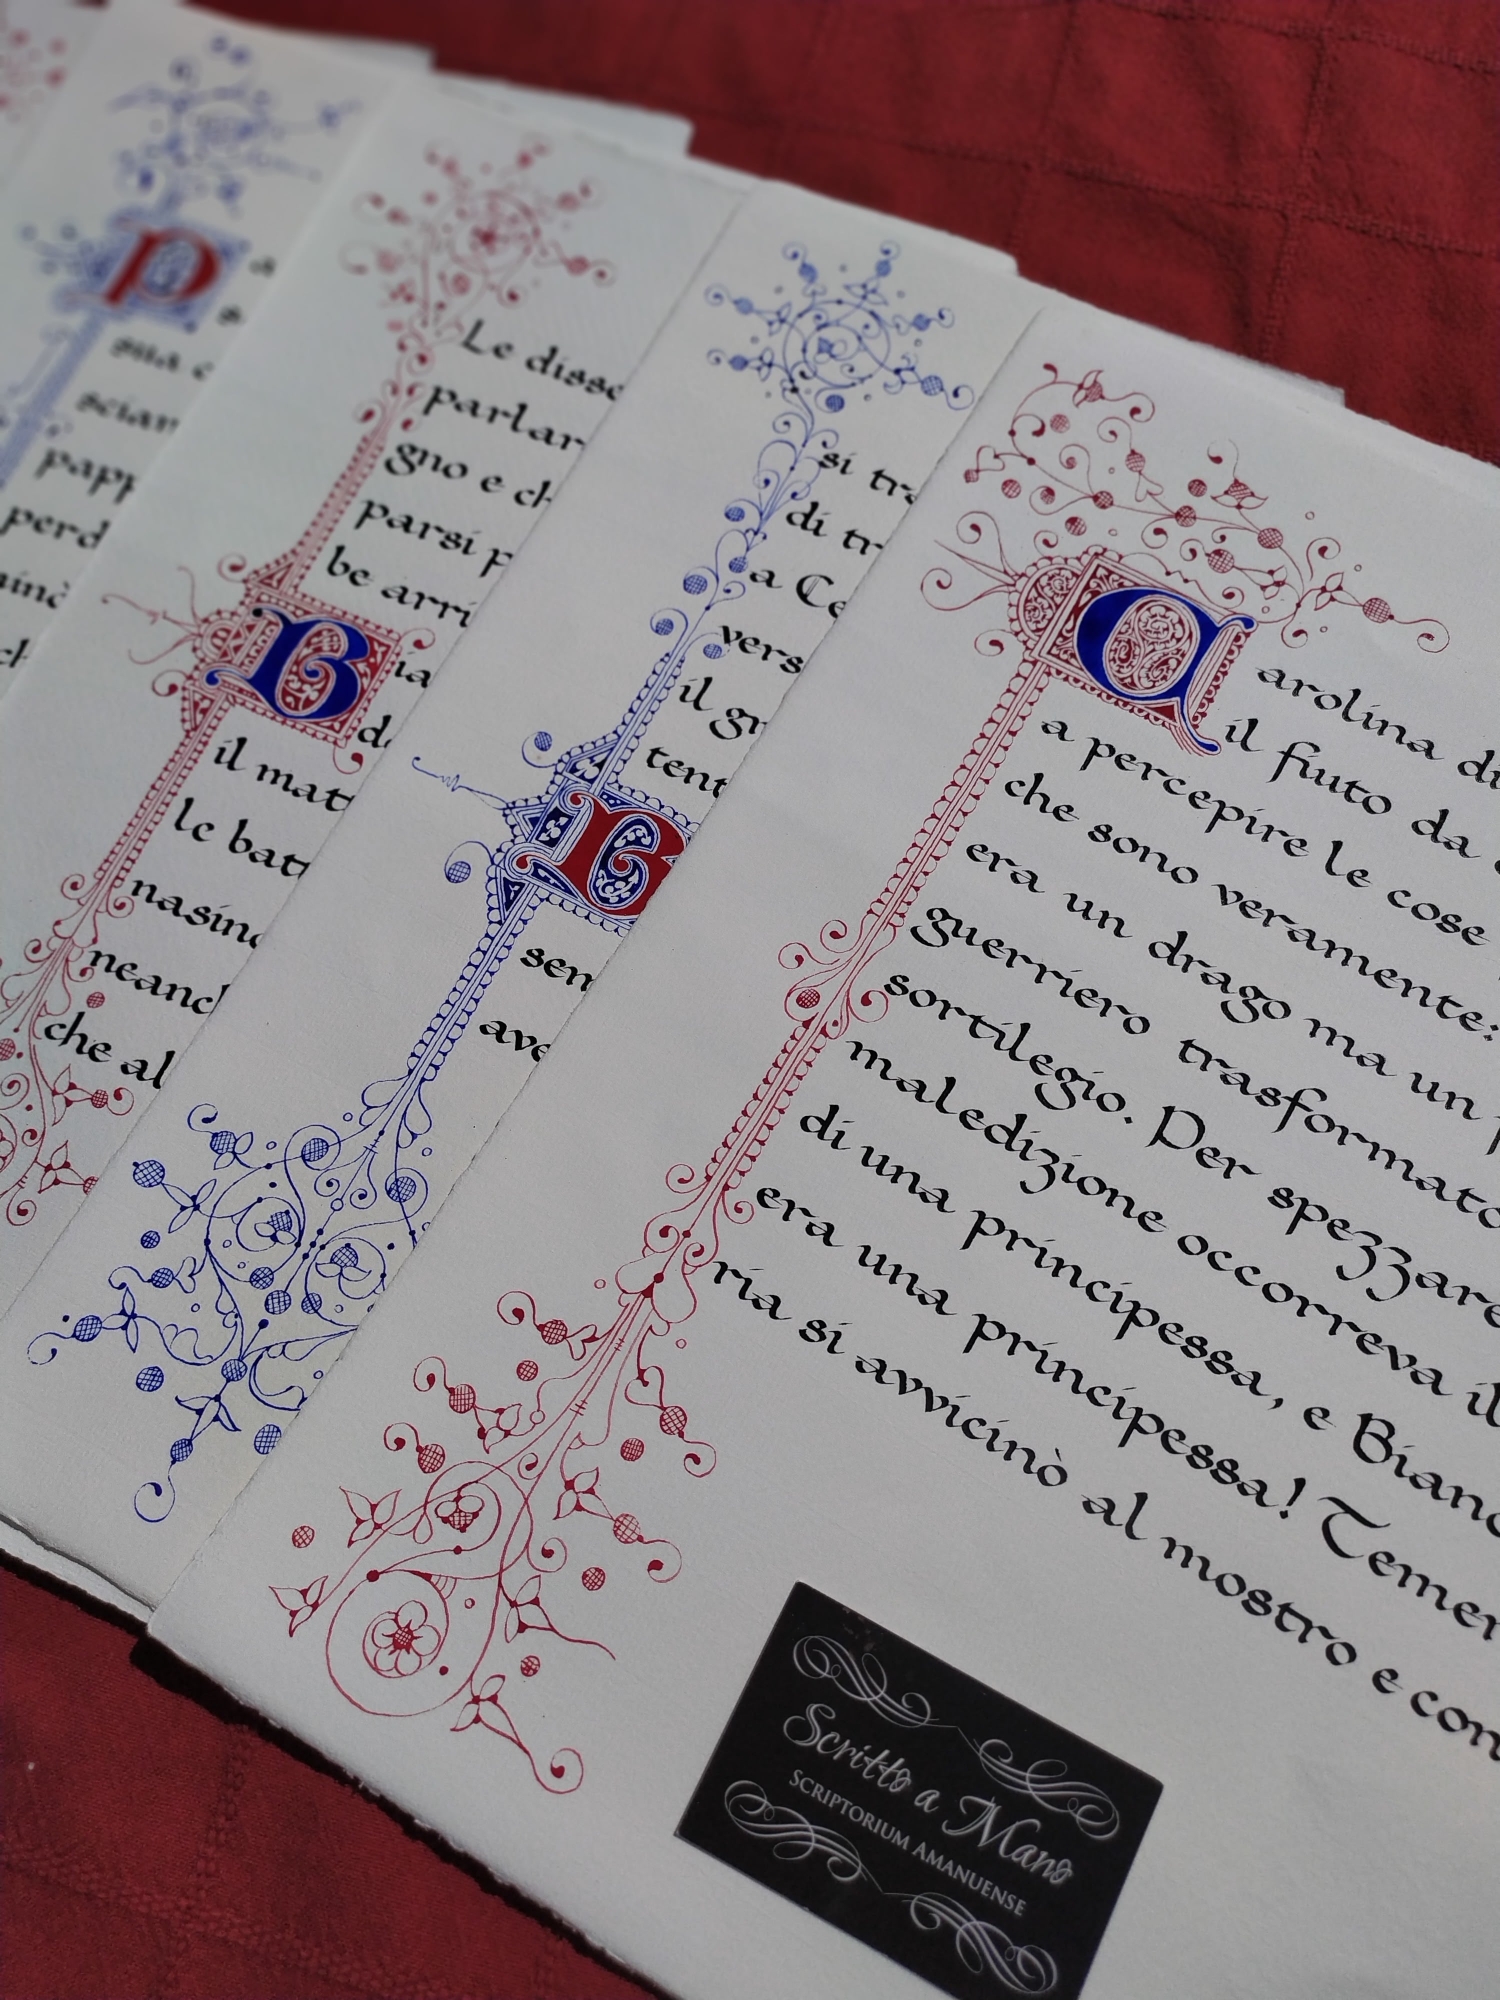 P
sua c
scian
papp
perd
ch
Le disse
parlar
gno e ch
parsi p
be arri
Bia
de
il mat
le batt
nasin
neancl
che al
si tra
di tr
a Ce
vers
il gr
tent
B
sen
ave
Carolina di
il fiuto da
a percepire le cose
che sono veramente:
era un drago ma un p
guerriero trasformato
sortilegio. Per spezzare
maledizione occorreva il
di una principessa, e Bianc
era una principessa! Temer
ria si avvicinò al mostro e con
Scritto a Mano
SCRIPTORIUM AMANUENSE